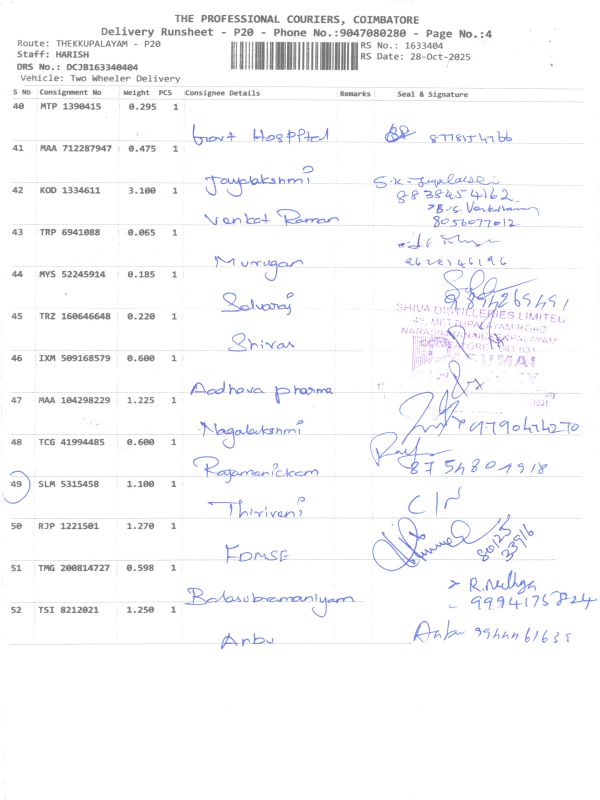 THE PROFESSIONAL COURIERS, COIMBATORE
Delivery Runsheet - P20 - Phone No.:9047080280 - Page No.:4
Route: THEKKUPALAYAM - P20
RS No.: 1633404
Staff: HARISH
RS Date: 28-Oct-2025
DRS No.: DCJB163340404
Vehicle: Two Wheeler Delivery
S No Consignment No Weight PCS Consignee Details Remarks Seal & Signature
40 MTP 1390415 0.295 1
Govt Hospital
41 MAA 712287947 0.475 1
Jayalakshmi
8838454162
42 KOD 1334611 3.100 1
Venkat Raman
8056077012
43 TRP 6941088 0.065 1
Murugan
44 MYS 52245914 0.185 1
Selvaraj
45 TRZ 160646648 0.220 1
SHIVA DISTILLERIES LIMITED
Shivas
46 IXM 509168579 0.600 1
Aadhava pharma
47 MAA 104298229 1.225 1
Nagalakshmi
9790474270
48 TCG 41994485 0.600 1
Rajamanickam
8754801918
49 SLM 5315458 1.100 1
Thiriveni
50 RJP 1221501 1.270 1
FOMSE
51 TMG 200814727 0.598 1
Balasubramaniyam
52 TSI 8212021 1.250 1
Anbu
Anbu 9944461639